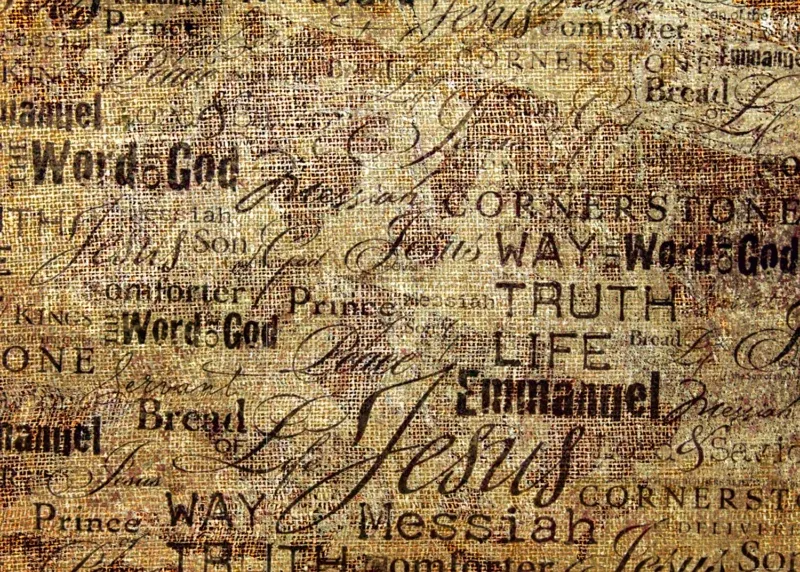 Prince
Jesus
Comforter
KINGS
Peace
CORNERSTONE
Emmanuel
Bread
of
Life
manuel
THE Word OF God
Messiah
CORNERSTONE
TH
Messiah
Jesus
Son
of God
Jesus
WAY
THE Word OF God
omforter
Prince
Messiah
TRUTH
KINGS
THE Word OF God
Son
LIFE
Bread
ONE
Peace
Servant
Emmanuel
Messiah
Bread
of
Life
Jesus
manuel
Lord & Savio
Jesus
CORNERST
Prince
WAY
Messiah
DELIVER
TRUTH
omforter
Jesus
Son